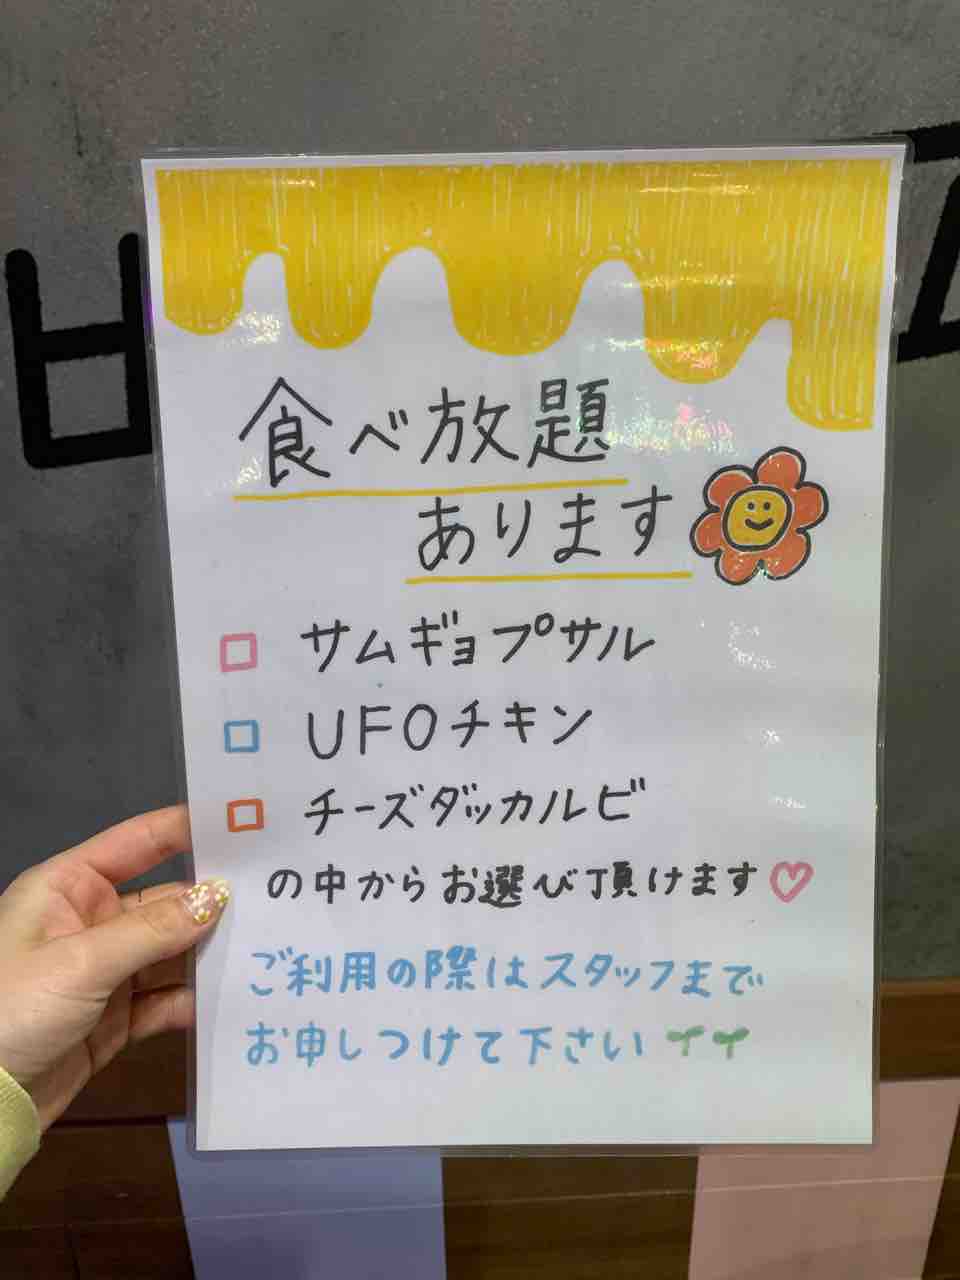 食べ放題
あります
□ サムギョプサル
□ UFOチキン
□ チーズダッカルビ
の中からお選び頂けます♡
ご利用の際はスタッフまで
お申しつけて下さい